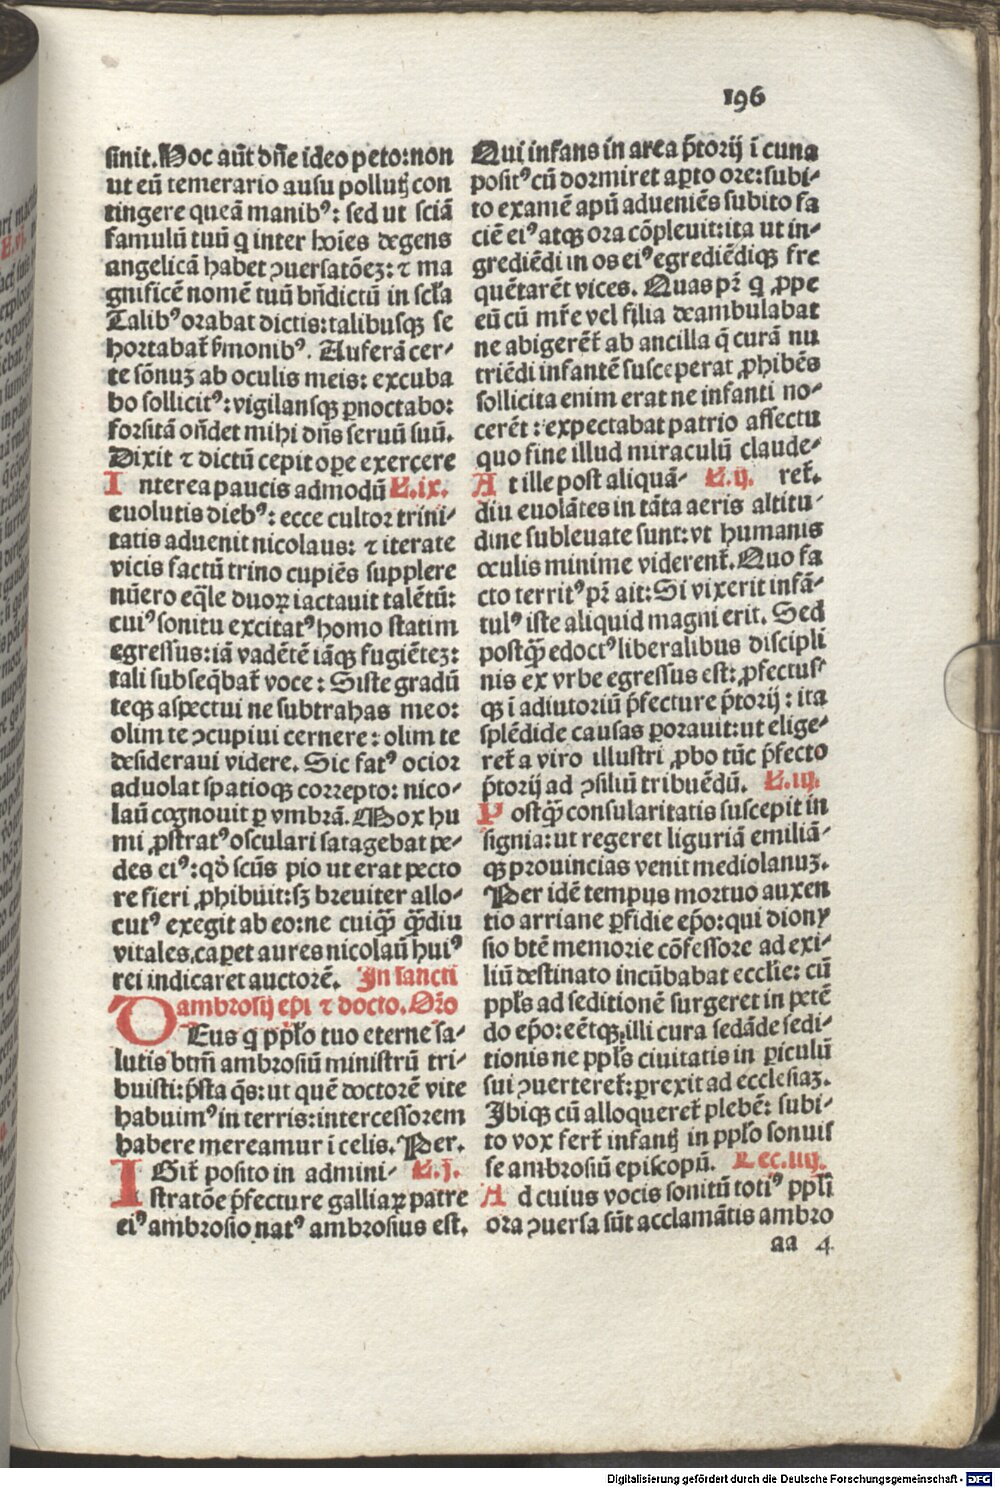 196
sinit. Hoc aūt dn̄e ideo peto: non
ut eū temerario ausu pollutꝫ con
tingere queā manibꝰ: sed ut sciā
famulū tuū q inter hoīes degens
angelicā habet ꝯuersatōeꝫ: ⁊ ma
gnificē nomē tuū bn̄dictū in scl̄a
Talibꝰ orabat dictis: talibusqꝫ se
hortabat̄ ẜmonibꝰ. Auferā cer-
te sōnuꝫ ab oculis meis: excuba
bo sollicitꝰ: vigilansqꝫ ꝑnoctabo:
forsitā on̄det mihi dn̄s seruū suū.
Dixit ⁊ dictū cepit oꝑe exercere
Interea paucis admodū L.ix.
euolutis diebꝰ: ecce cultor trini-
tatis aduenit nicolaus: ⁊ iterate
vicis factū trino cupiēs supplere
nūero eq̄le duoꝝ iactauit talētū:
cuiꝰ sonitu excitatꝰ homo statim
egressus: iā vadētē iāqꝫ fugiēteꝫ:
tali subseq̄bat̄ voce: Siste gradū
teqꝫ aspectui ne subtrahas meo:
olim te ꝯcupiui cernere: olim te
desideraui videre. Sic fatꝰ ocior
aduolat spatioqꝫ correpto: nico-
laū cognouit ꝑ vmbrā. Mox hu
mi ꝓstratꝰ osculari satagebat pe-
des eiꝰ: qd̄ scūs pio ut erat pecto
re fieri ꝓhibuit: sꝫ breuiter allo-
cutꝰ exegit ab eo: ne cuiqꝫ̄ qꝫ̄diu
vitales caꝑet aures nicolaū huiꝰ
rei indicaret auctorē. In sancti
ambrosij epi ⁊ docto. Or̄o
DEus q pp̄lo tuo eterne sa-
lutis btm̄ ambrosiū ministrū tri-
buisti: p̄sta q̄s: ut quē doctorē vite
habuimꝰ in terris: intercessorem
habere mereamur ī celis. Per.
IGit̄ posito in admini- L.j.
stratōe p̄fecture galliaꝝ patre
eiꝰ ambrosio natꝰ ambrosius est.
Qui infans in area p̄torij ī cuna
positꝰ cū dormiret aꝑto ore: subi-
to examē apū adueniēs subito fa
ciē eiꝰ atqꝫ ora cōpleuit: ita ut in-
grediēdi in os eiꝰ egrediēdiqꝫ fre
quētarēt vices. Quas pr̄ q ꝓpe
eū cū mr̄e vel filia deambulabat
ne abigerēt̄ ab ancilla q̄ curā nu
triēdi infantē susceperat ꝓhibēs
sollicita enim erat ne infanti no-
cerēt: expectabat patrio affectu
quo fine illud miraculū claude-
At ille post aliquā- L.ij. ret̄.
diu euolātes in tāta aeris altitu-
dine subleuate sunt: vt humanis
oculis minime viderent̄. Quo fa
cto territꝰ pr̄ ait: Si vixerit infā-
tulꝰ iste aliquid magni erit. Sed
postqꝫ̄ edoctꝰ liberalibus discipli
nis ex vrbe egressus est: ꝓfectusꝰ
qꝫ ī adiutoriū p̄fecture p̄torij: ita
splēdide causas ꝑorauit: ut elige-
ret̄ a viro illustri ꝓbo tūc p̄fecto
p̄torij ad ꝯsiliū tribuēdū. L.iij.
Postqꝫ̄ consularitatis suscepit in
signia: ut regeret liguriā emiliā-
qꝫ prouincias venit mediolanuꝫ.
Per idē tempus mortuo auxen
tio arriane ꝑfidie ep̄o: qui diony
sio btē memorie cōfessore ad exi-
liū destinato incūbabat eccl̄ie: cū
ppl̄s ad seditionē surgeret in petē
do ep̄o: eētqꝫ illi cura sedāde sedi-
tionis ne ppl̄s ciuitatis in ꝑiculū
sui ꝯuerteret̄: ꝑrexit ad ecclesiaꝫ.
Ibiqꝫ cū alloqueret̄ plebē: subi-
to vox fert̄ infantꝫ in pp̄lo sonuis
se ambrosiū episcopū. Lec.iiij.
Ad cuius vocis sonitū totiꝰ ppl̄i
ora ꝯuersa sūt acclamātis ambro
aa 4
Digitalisierung gefördert durch die Deutsche Forschungsgemeinschaft - DFG